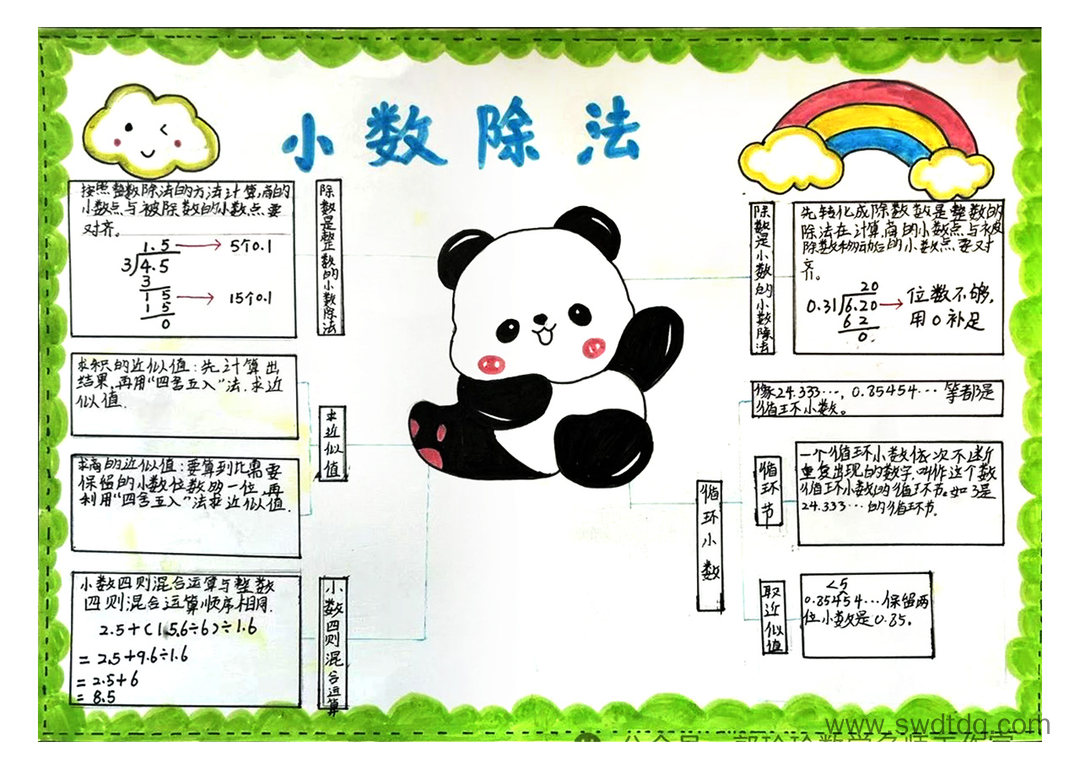 小数除法
按照整数除法的方法计算,商的
小数点与被除数的小数点要
对齐。
1.5 → 5个0.1
3 4.5
3
1 5 → 15个0.1
1 5
0
除数是整数的小数除法
求积的近似值:先计算出
结果,再用“四舍五入”法.求近
似值.
求商的近似值:要算到比需要
保留的小数位数多一位,再
利用“四舍五入”法求近似值.
求近似值
小数四则混合运算与整数
四则混合运算顺序相同.
2.5+(15.6÷6)÷1.6
=2.5+9.6÷1.6
=2.5+6
=8.5
小数四则混合运算
除数是小数的小数除法
先转化成除数是整数的
除法在计算,商的小数点与被
除数移动后的小数点要对
齐。
20
0.31 6.20 → 位数不够,
用0补足
6 2
0.
像24.333…,0.85454…等都是
循环小数。
循环小数
循环节
一个循环小数依次不断
重复出现的数字,叫作这个数
循环小数的循环节.如3是
24.333…的循环节.
取近似值
<5
0.85454…保留两
位小数是0.85。
www.swdtdq.com